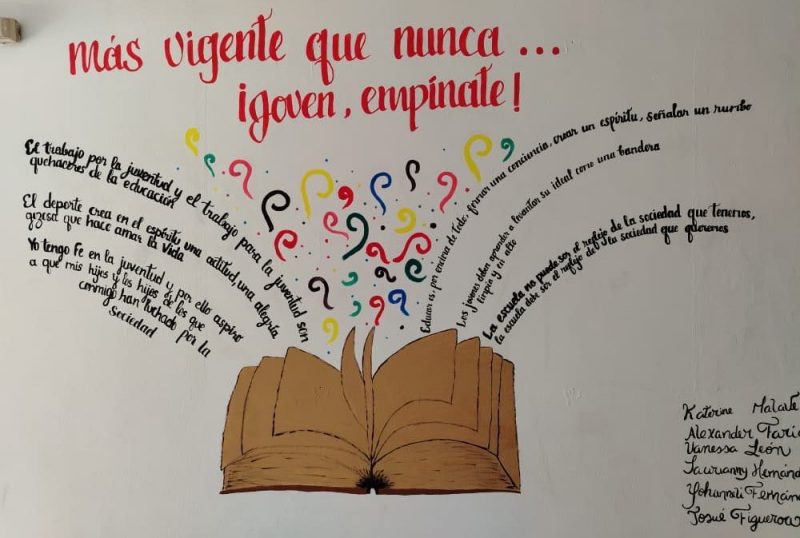 más vigente que nunca...
¡joven, empínate!
El trabajo por la juventud y el trabajo para la juventud son
quehaceres de la educación
El deporte crea en el espíritu una actitud, una alegría
gizesa que hace amar la vida
Yo tengo Fe en la juventud y por ello aspiro
a que mis hijes y lis hijes de los que
conmigo han luchado por la
Sociedad
Educar es, por encima de todo, formar una conciencia, crear un espíritu, señalar un rumbo
Los jovenes deben aprender a levantar su ideal como una bandera
limpia y en alto
La escuela no puede ser el reflejo de la sociedad que tenemos,
la escuela debe ser el reflejo de la sociedad que queremos
Katerine
Alexander
Vanessa León
Josué Figueroa